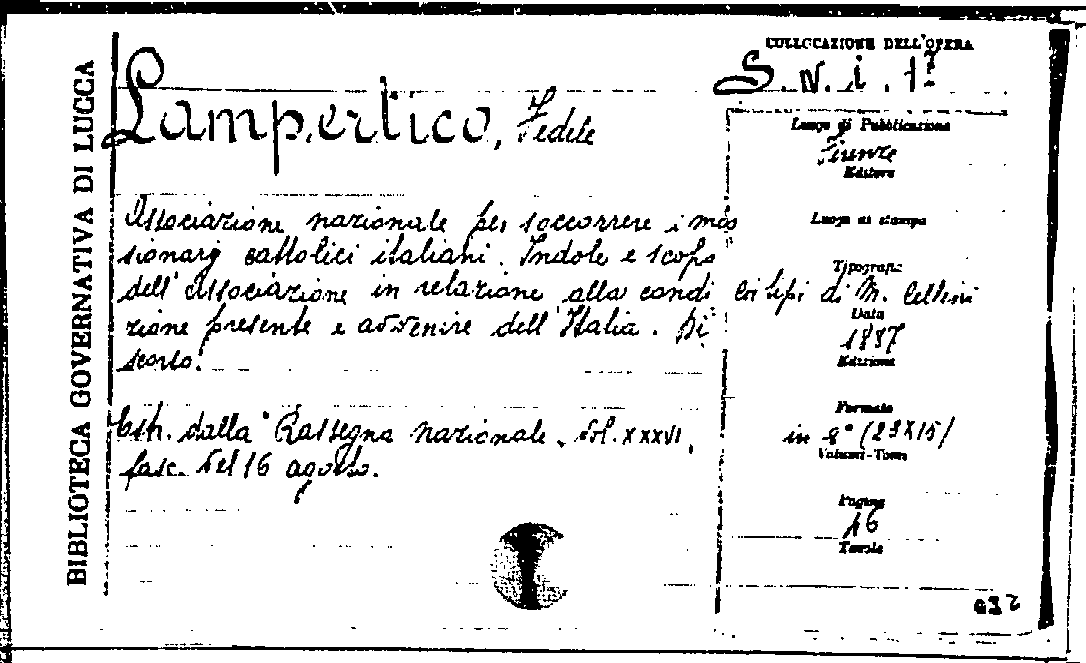 BIBLIOTECA GOVERNATIVA DI LUCCA
Lampertico, Fedele
Associazione nazionale per soccorrere i mis
sionarj cattolici italiani. Indole e scopo
dell'associazione in relazione alla condi
zione presente e avvenire dell'Italia. Di
scorso.
Estr. dalla "Rassegna nazionale. Vol. XXXVI,
fasc. del 16 agosto.
COLLOCAZIONE DELL'OPERA
Luogo di Pubblicazione
Firenze
Editore
Luogo di stampa
Tipografia
Coi tipi di M. Cellini
Data
1887
Edizione
Formato
in 8° (23X15)
Volumi-Tomi
Pagine
16
Tavole